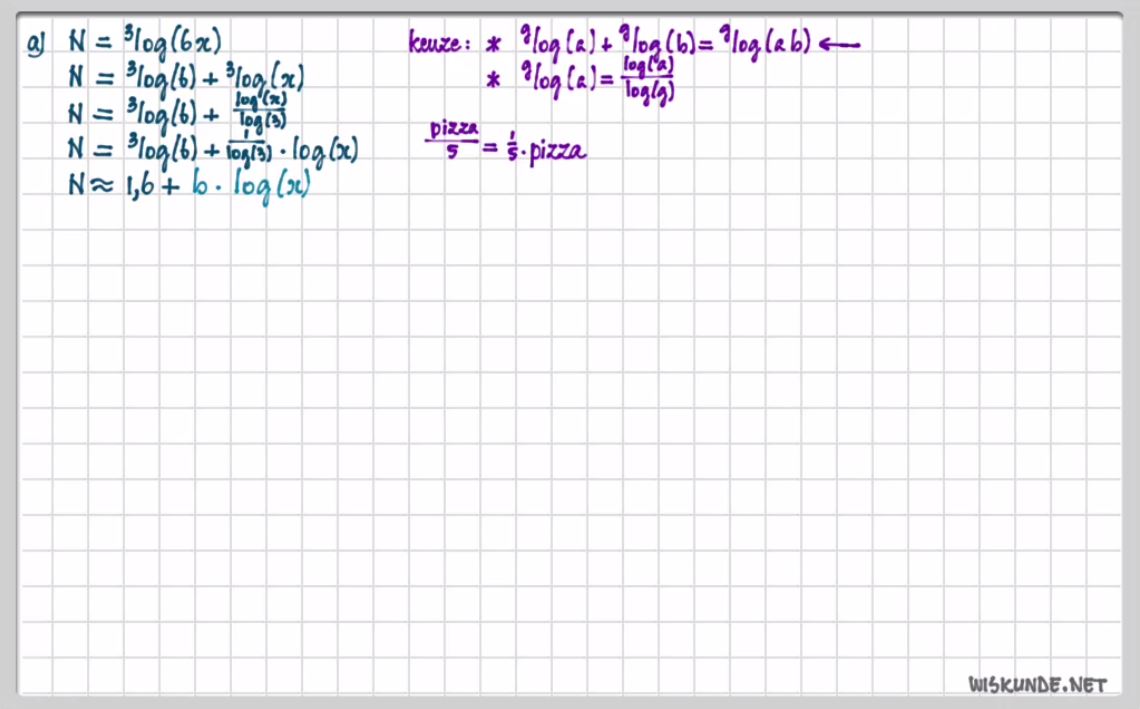 a) N = ³log(6x)
N = ³log(6) + ³log(x)
N = ³log(6) + log(x)/log(3)
N = ³log(6) + 1/log(3) · log(x)
N ≈ 1,6 + b · log(x)
keuze: * ᵍlog(a) + ᵍlog(b) = ᵍlog(ab) ←
* ᵍlog(a) = log(a)/log(g)
pizza/5 = 1/5 · pizza
WISKUNDE.NET